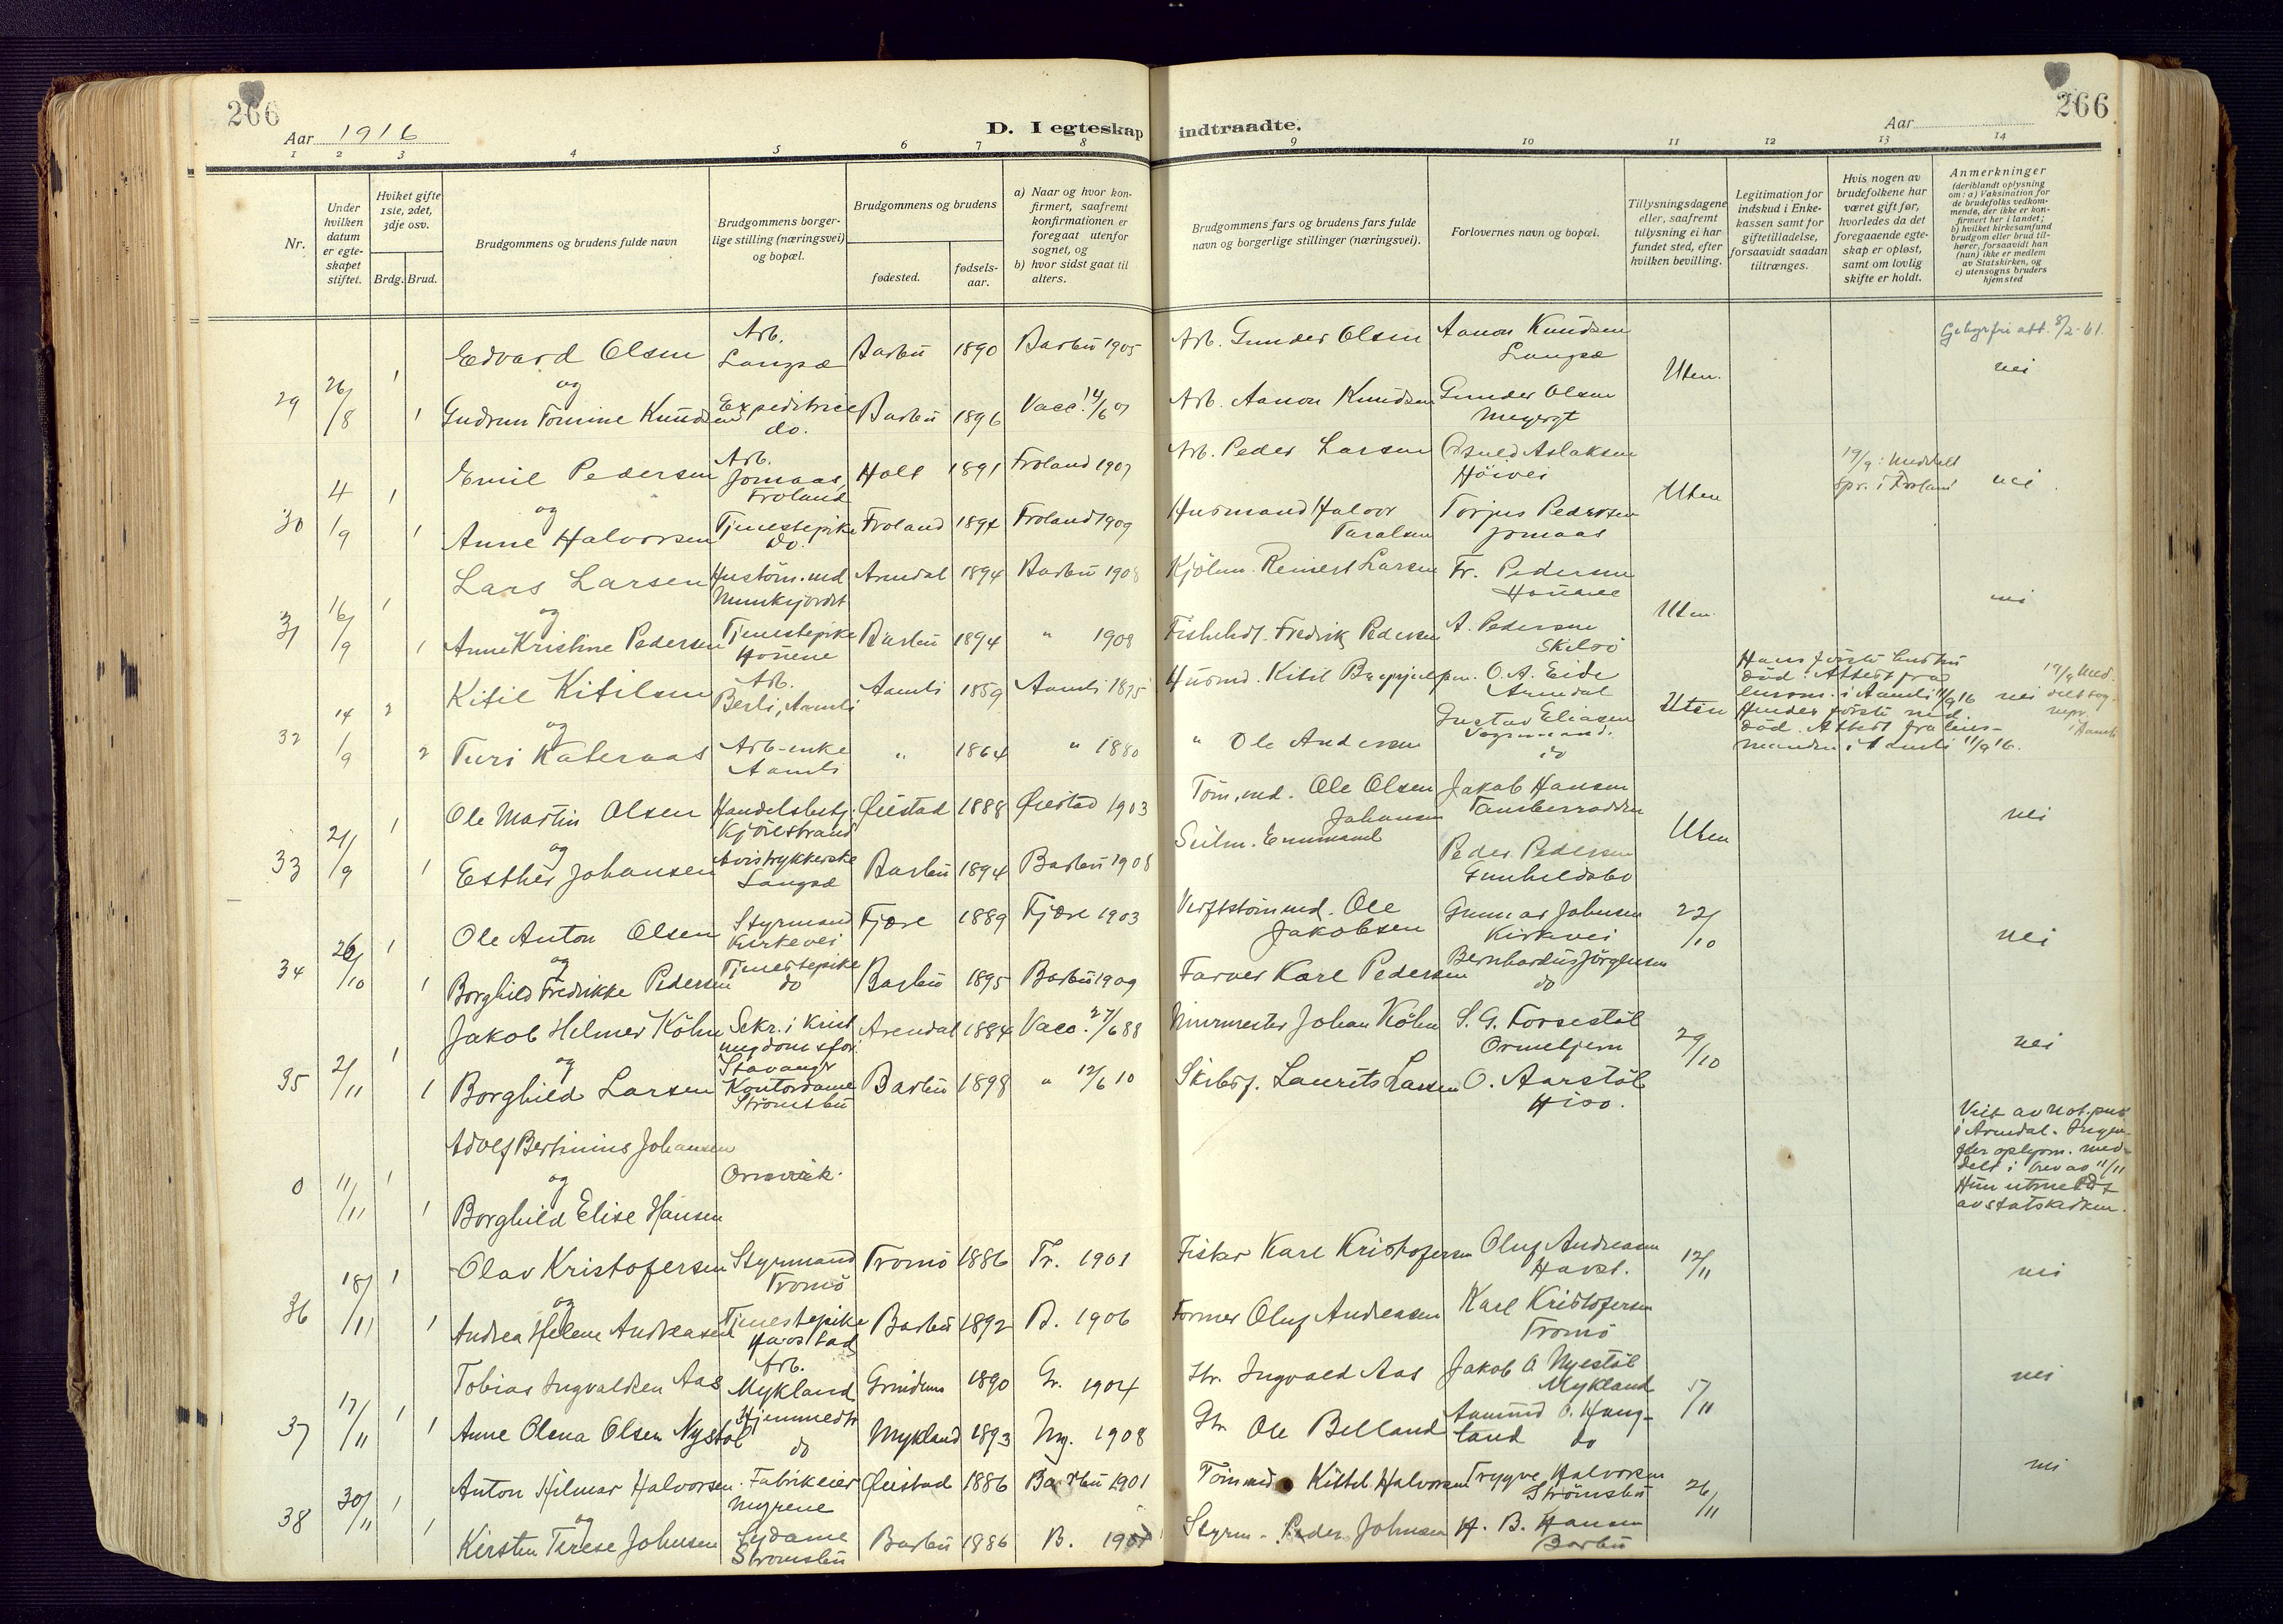 266
266
Aar 1916
D. I egteskap indtraadte.
Aar
1 2 3 4 5 6 7 8 9 10 11 12 13 14
Nr.
Under hvilken datum er egteskapet stiftet.
Hvilket gifte 1ste, 2det, 3dje osv.
Brdg. Brud.
Brudgommens og brudens fulde navn
Brudgommens borgerlige stilling (næringsvei) og bopæl.
Brudgommens og brudens
fødested.
fødselsaar.
a) Naar og hvor konfirmert, saafremt konfirmationen er foregaat utenfor sognet, og
b) hvor sidst gaat til alters.
Brudgommens fars og brudens fars fulde navn og borgerlige stillinger (næringsvei).
Forlovernes navn og bopæl.
Tillysningsdagene eller, saafremt tillysning ei har fundet sted, efter hvilken bevilling.
Legitimation for indskud i Enkekassen samt for giftetilladelse, forsaavidt saadan tiltrænges.
Hvis nogen av brudefolkene har været gift før, hvorledes da det foregaaende egteskap er opløst, samt om lovlig skifte er holdt.
Anmerkninger
(deriblandt oplysning om: a) Vaksination for de brudefolks vedkommende, der ikke er konfirmert her i landet; b) hvilket kirkesamfund brudgom eller brud tilhører, forsaavidt han (hun) ikke er medlem av Statskirken, og c) utensogns bruders hjemsted
29 26/8 1 Edvard Olsen Arb. Langsæ Barbu 1890 Barbu 1905 Arb. Gunder Olsen Aanon Knudsen Langsæ Uten. nei
Gebyrfri att. 8/2-61.
og
1 Gudrun Tomine Knudsen Expeditrice do. Barbu 1896 Vacc. 14/6 07 Arb. Aanon Knudsen Gunder Olsen
30 4/9 1 Emil Pedersen Arb. Jomaas, Froland Holt 1891 Froland 1907 Arb. Peder Larsen Aslaksen Höivei Uten 19/9: Meddelt spr. i Froland nei
og
1 Anne Halvorsen Tjenestepike do. Froland 1894 Froland 1909 Husmand Halvor Taralsen Torjus Pedersen Jomaas
31 16/9 1 Lars Larsen Hustöm.md Munkejordet Arendal 1894 Barbu 1908 Kjölm. Reinert Larsen Fr. Pedersen Uten nei
og
1 Anne Kristine Pedersen Tjenestepike Barbu 1894 " 1908 Fredrik Pedersen A. Pedersen Skilsö
32 14/9 2 Kitil Kitilsen Arb. Berli, Aamli Aamli 1859 Aamli 1875 Husmd. Kitil O. A. Eide Arendal Uten Hans første hustru död. Attest fra lensm. i Aamli 11/9 16 nei
og
2 Turi Kateraas Arb-enke Aamli " 1864 " 1880 " Ole Andersen Gustav Eliasen Vognmand. do Hendes første md död. Attest fra lensmanden i Aamli 11/9 16.
33 21/9 1 Ole Martin Olsen Handelsbetj. Øiestad 1888 Øiestad 1903 Töm.md. Ole Olsen Jakob Hansen Uten nei
og
1 Esther Johansen Langsæ Barbu 1894 Barbu 1908 Seilm. Emmanuel Johansen Peder Pedersen Gunhildsbo
34 26/10 1 Ole Anton Olsen Styrmand Kirkevei Fjære 1889 Fjære 1903 Verftstömmd. Ole Jakobsen Gunnar Johnsen Kirkevei 22/10 nei
og
1 Borghild Fredrikke Pedersen Tjenestepike do Barbu 1895 Barbu 1909 Farver Karl Pedersen Bernhardus Jörgensen do
35 2/11 1 Jakob Helmer Köhn Sekr. i Krist. ungdomsfor. Stavanger Arendal 1884 Vacc. 27/6 88 Murmester Johan Köhn S. G. Forsestöl 29/10 nei
og
1 Borghild Larsen Kontordame Strömsbu Barbu 1898 " 12/6 10 Laurits Larsen O. Aarstöl Hisö.
0 11/11 1 Adolf Bertinius Johansen
og Ormvik.
1 Borghild Elise Hansen
Viet av not. pub. i Arendal. Ingen fler oplysn. meddelt i brev av 11/11 Hun utmeldt av statskirken.
36 18/11 1 Olav Kristofersen Styrmand Tromö Tromö 1886 Tr. 1901 Fisker Karl Kristofersen Oluf Andreasen Havst. 12/11 nei
og
1 Andrea Helene Andreasen Tjenestepike Havstad Barbu 1892 B. 1906 Former Oluf Andreasen Karl Kristofersen Tromö
37 17/11 1 Tobias Ingvaldsen Aas Arb. Mykland 1890 Gr. 1904 Ingvald Aas Jakob O. Nyestöl Mykland 5/11 nei
1 Anne Olena Olsen Nystöl do Mykland 1893 My. 1908 Ole Belland Aamund O. Haugland do
38 30/11 1 Anton Hilmar Halvorsen Fabrikeier Myrene Øiestad 1886 Barbu 1901 Tömmd Kittel Halvorsen Trygve Halvorsen Strömsbu 26/11 nei
og
1 Kirsten Terese Johnsen Sydame Strömsbu Barbu 1886 B. 1901 Styrm. Peder Johnsen H. B. Hansen Barbu